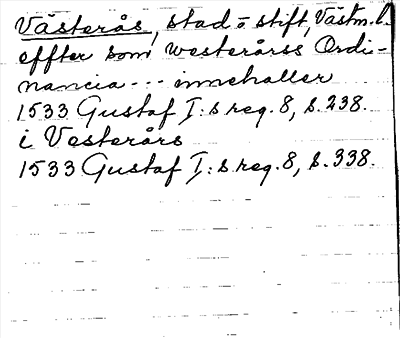 Västerås, stad o stift, Västm. l.
effter som westerårss Ordi-
nancia --- innehaller
1533 Gustaf I:s reg. 8, s. 238.
i Vesterårs
1533 Gustaf I:s reg. 8, s. 338.